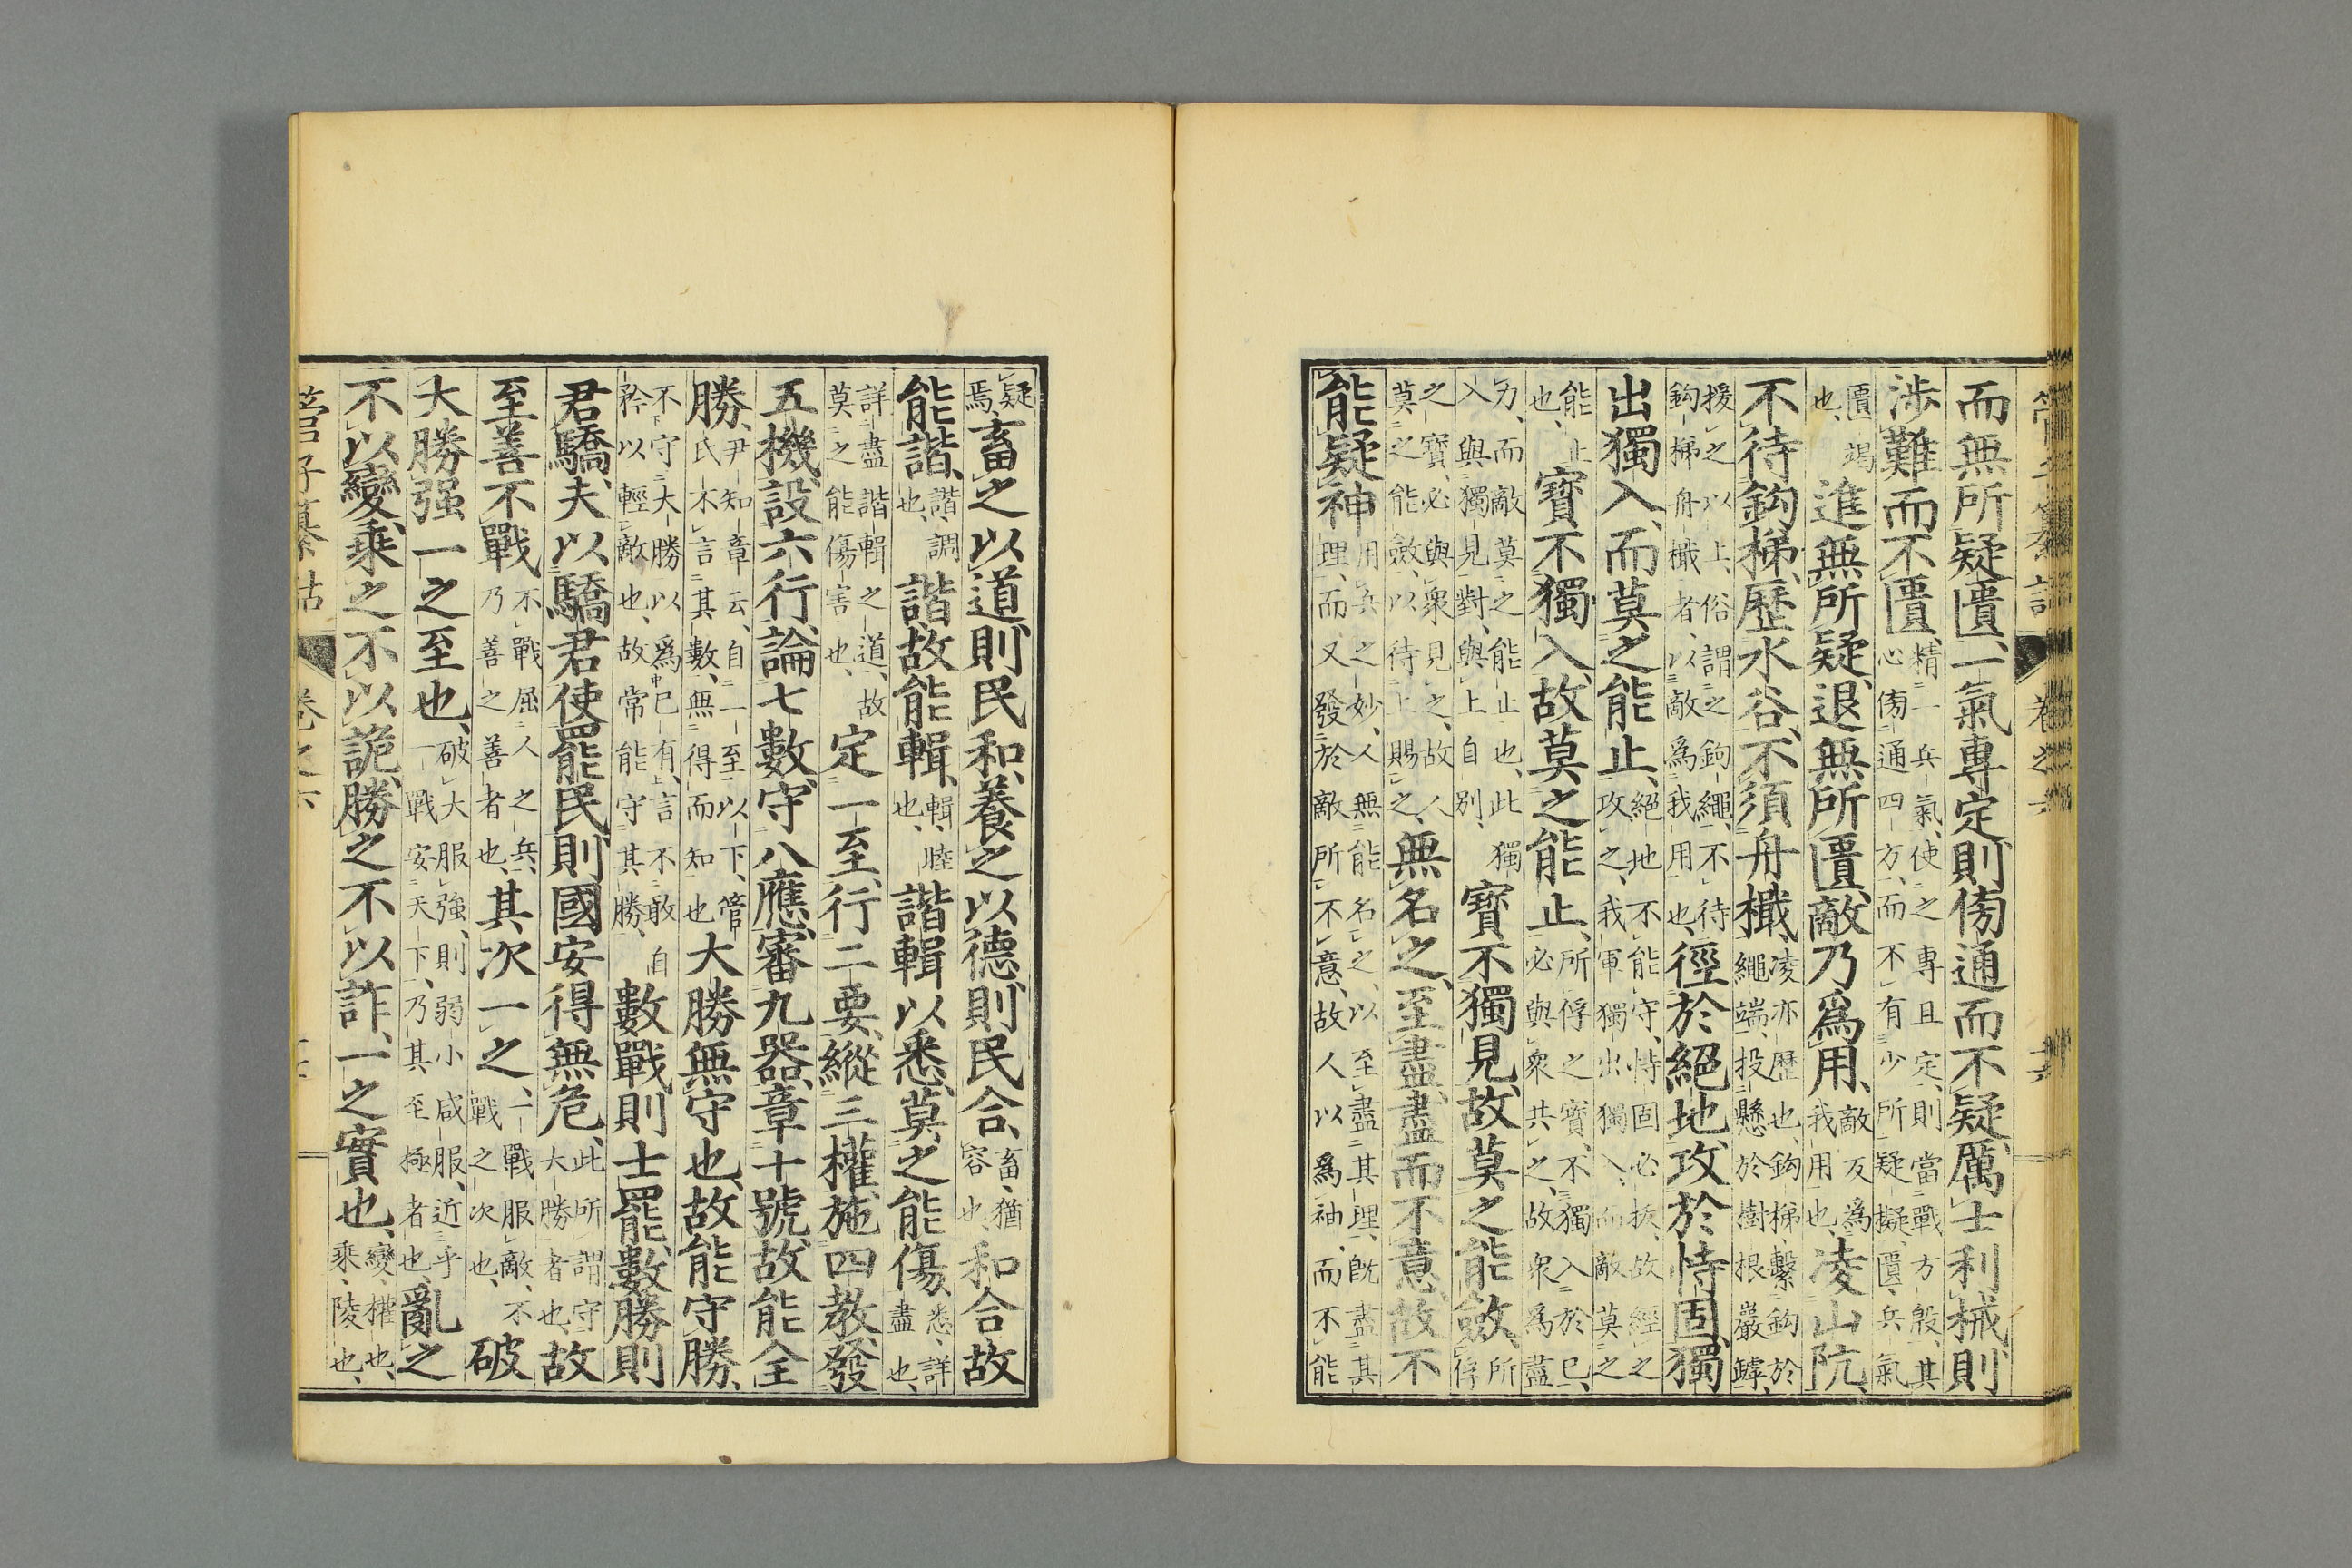 管子纂詁 卷之六
而無所疑匱、一氣專定則傍通而不疑厲士利械則
涉難而不匱、精一兵氣、使之專且定、則當戰方殷、其心傍通四方、而不有少所疑擬、匱、兵氣
匱竭也、進無所疑、退無所匱、敵乃爲用、敵反爲我用也、凌山阬、
不待鈎梯、歷水谷、不須舟檝、凌亦歷也、鈎梯、繫鈎於繩端、投懸於樹根巖罅、
援之以上、俗謂之鉤繩、不待鈎梯舟檝者、以敵爲我用也、徑於絕地攻於恃固、獨
出獨入、而莫之能止、絕地不能守、恃固必拔、故經之攻之、我軍獨出獨入、而敵莫之
能止也、寶不獨入、故莫之能止、所俘之寶、不獨入於已、必與衆共之、故衆爲蓋
力、而敵莫之能止也、此獨入與獨見對、與上自別、寶不獨見、故莫之能斂、所俘
之寶、必與衆見之、故人莫之能斂、以待上賜之、無名之、至盡盡而不意、故不
能疑神、用兵之妙、人無能名之、以至盡其理、既盡其理、而又發於敵所不意、故人以爲神、而不能
疑焉、畜之以道、則民和、養之以德、則民合、畜、猶容也、和合故
能諧、諧、調也、諧故能輯、輯、睦也、諧輯以悉、莫之能傷、悉、詳盡也、
詳盡諧輯之道、故莫之能傷害也、定一至、行二要、縱三權、施四教、發
五機、設六行、論七數、守八應、審九器、章十號、故能全
勝、尹知章云、自一至以下、管氏不言其數、無得而知也大勝無守也、故能守勝、
不守大勝、以爲已有、言不敢自矜以輕敵也、故常能守其勝、數戰則士罷、數勝則
君驕、夫以驕君使罷民則國安得無危、此所謂守大勝者也、故
至善不戰不戰屈人之兵、乃善之善者也、其次一之、一戰服敵、不戰之次也、破
大勝强一之至也、破大服強、則弱小咸服、近乎一戰安天下、乃其至極者也、亂之
不以變、乘之不以詭、勝之不以詐、一之實也、變、權也、乘、陵也、
管子纂詁 卷之六